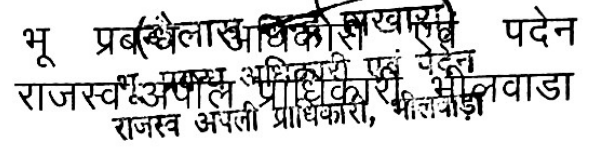 (कैलाश चन्द्र लखारा)
भू प्रबन्ध अधिकारी एवं पदेन
राजस्व अपील प्राधिकारी, भीलवाडा
भू प्रबन्ध अधिकारी एवं पदेन
राजस्व अपली प्राधिकारी, भीलवाड़ा